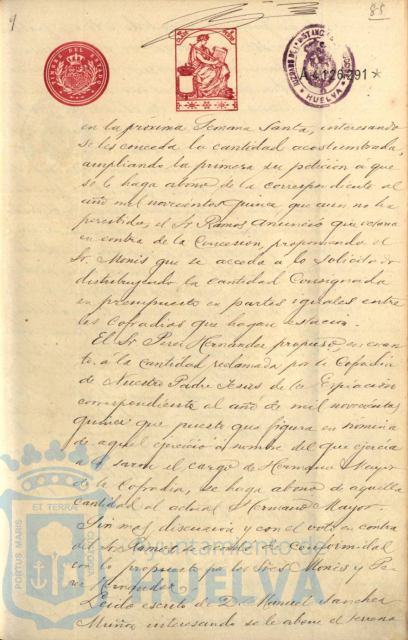 9
85
TIMBRE DEL ESTADO
HUELVA
A.4.126.291 *
en la próxima Semana Santa, interesando
se les conceda la cantidad acostumbrada,
ampliando la primera su petición a que
se le haga abono de la correspondiente al
año mil novecientos quince que aun no ha
percibido, el Sr. Ramos anunció que votaria
en contra de la concesión, proponiendo el
Sr. Monis que se acceda a lo solicitado
distribuyendo la cantidad consignada
en presupuesto en partes iguales entre
las Cofradias que hagan estación.
El Sr. Perez Hernandez propuso, en cuan-
to á la cantidad reclamada por la Cofradia
de Nuestro Padre Jesus de la Expiración
correspondiente al año de mil novecientos
quince que puesto que figura en nomina
de aquel ejercicio a nombre del que ejercia
a la sazon el cargo de Hermano Mayor
de la Cofradia, se haga abono de aquella
cantidad al actual Hermano Mayor.
Sin mas discusión y con el voto en contra
del Sr. Ramos se acordó de conformidad
con lo propuesto por los Sres. Monis y Pe-
rez Hernandez.
Leido escrito de D. Manuel Sanchez
Muñiz interesando se le abone el
PORTUS MARIS ET TERRAE CUSTODIA
Ayuntamiento de
HUELVA